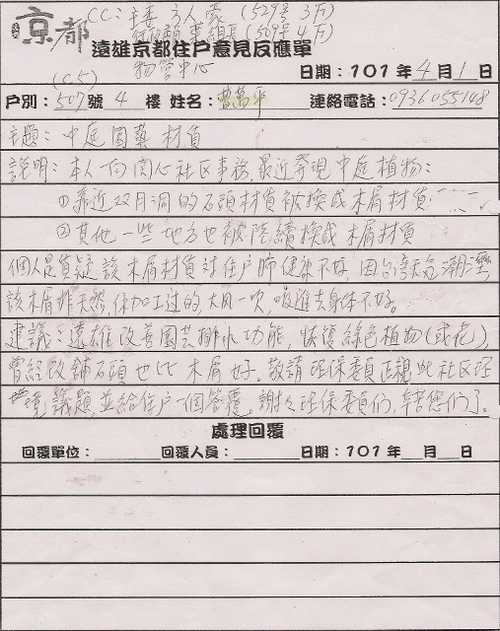 CC: 主委 方人豪 (529号 3F)
京都 (509号 4F)
遠雄京都住戶意見反應單
(C.5) 物管中心 日期：101年4月1日
戶別：507號 4 樓 姓名： 連絡電話：0936055148
主題：中庭園藝材質
説明：本人向関心社区事務,最近発現中庭植物：
①靠近双月湖的石頭材質被換成木屑材質
②其他一些地方也被陸續換成木屑材質
個人是質疑該木屑材質对住戶肺健康不好,因台湾天気潮溼
該木屑非天然,係加工过的,大風一吹,吸進去身体不好。
建議：遠雄改善園芸排水功能,恢復綠色植物(或花),
曾経改舖石頭也比木屑好。敬請環保委員正視此社区环
境議題,並給住戶一個答覆,謝々环保委員们,辛苦您们了。
處理回覆
回覆單位： 回覆人員： 日期：101年 月 日